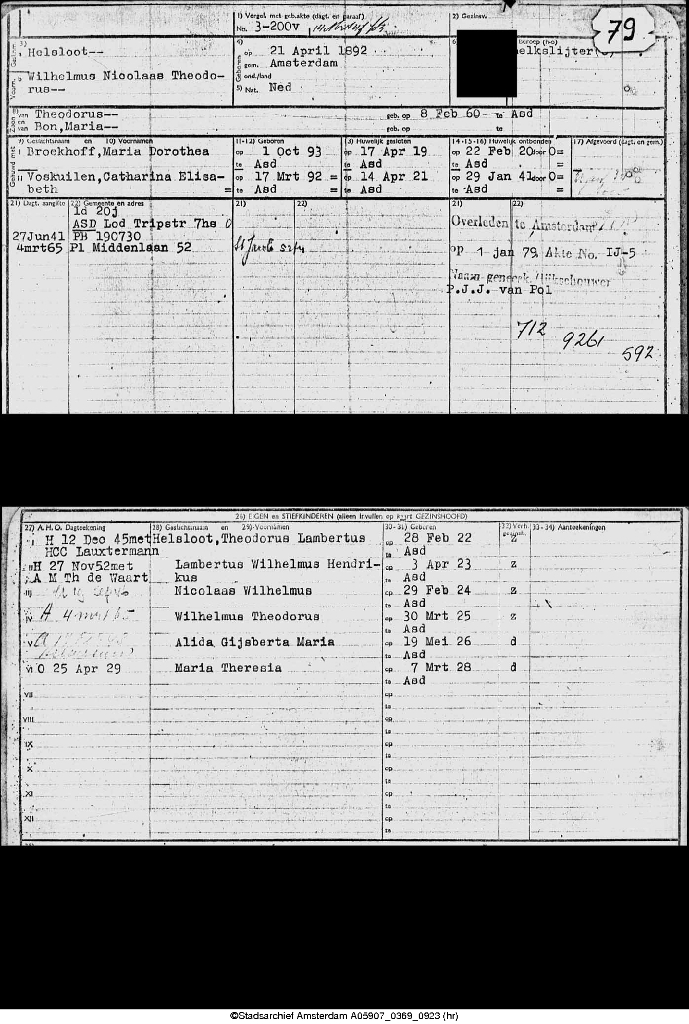 1) Vergel. met geb.akte (dagt. en paraaf)
No. 3-200v
2) Gezinsv.
79
3) Helsloot--
4) op 21 April 1892
gem. Amsterdam
ond./land
5) Nat. Ned
elkslijter(
Wilhelmus Nicolaas Theodo-
rus--
van Theodorus-- geb. op 8 Feb 60 te Asd
en van Bon,Maria-- geb. op te
9) Geslachtsnaam en 10) Voornamen
11-12) Geboren
13) Huwelijk gesloten
14-15-16) Huwelijk ontbonden
17) Afgevoerd (dagt. en gem.)
I Broekhoff,Maria Dorothea op 1 Oct 93 op 17 Apr 19 op 22 Feb 20 door O=
te Asd te Asd te Asd =
II Voskuilen,Catharina Elisa- op 17 Mrt 92 = op 14 Apr 21 op 29 Jan 41 door O=
beth = te Asd te Asd te Asd =
21) Dagt. aangifte 22) Gemeente en adres 21) 22) 21) 22)
1d 20j
ASD Lod Tripstr 7hs
27Jun41 PB 19C730
4mrt65 Pl Middenlaan 52
St Jacob
Overleden te Amsterdam
op 1 jan 79, Akte No. IJ-5
Naam geneesk./lijkschouwer
P.J.J. van Pol
712
9261
592
26) EIGEN en STIEFKINDEREN (alleen invullen op kaart GEZINSHOOFD)
27) A.H.O. Dagtekening 28) Geslachtsnaam en 29) Voornamen 30-31) Geboren 32) Verh. 33-34) Aantekeningen
I H 12 Dec 45met Helsloot,Theodorus Lambertus op 28 Feb 22 z
HCC Lauxtermann te Asd
II H 27 Nov52met Lambertus Wilhelmus Hendri- op 3 Apr 23 z
A M Th de Waart kus te Asd
III Nicolaas Wilhelmus op 29 Feb 24 z
te Asd
IV A 4 mrt 65 Wilhelmus Theodorus op 30 Mrt 25 z
te Asd
V A Alida Gijsberta Maria op 19 Mei 26 d
te Asd
VI O 25 Apr 29 Maria Theresia op 7 Mrt 28 d
te Asd
VII op
te
VIII op
te
IX op
te
X op
te
XI op
te
XII op
te
©Stadsarchief Amsterdam A05907_0369_0923 (hr)